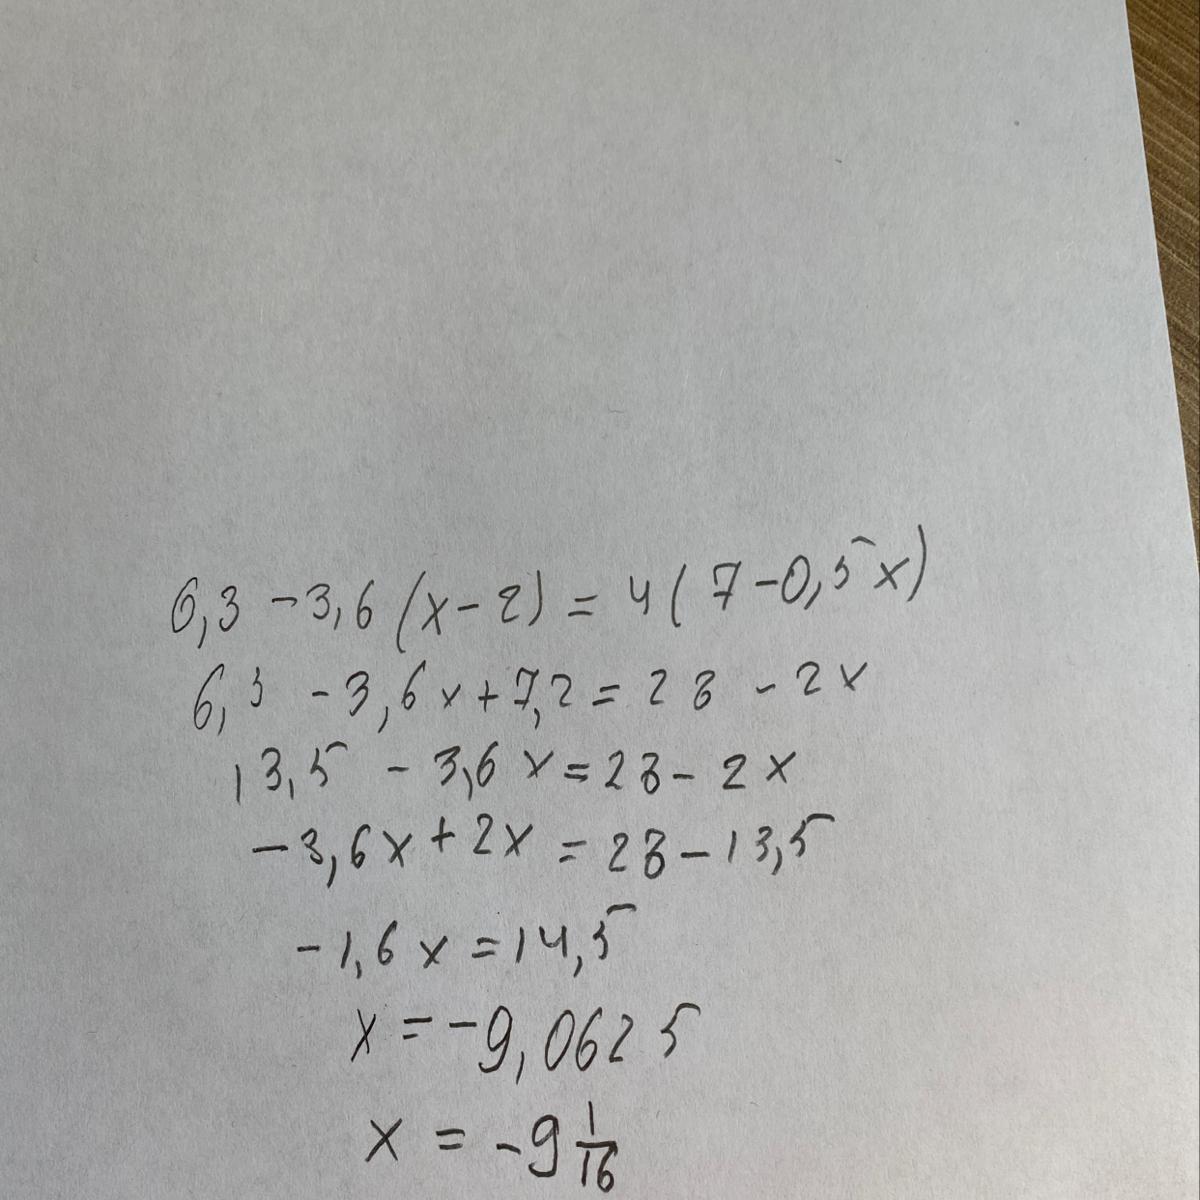 6,3 - 3,6 (x - 2) = 4 ( 7 - 0,5 x)
6,3 - 3,6 x + 7,2 = 28 - 2 x
13,5 - 3,6 x = 28 - 2 x
- 3,6 x + 2 x = 28 - 13,5
- 1,6 x = 14,5
x = - 9,0625
x = - 9 1/16